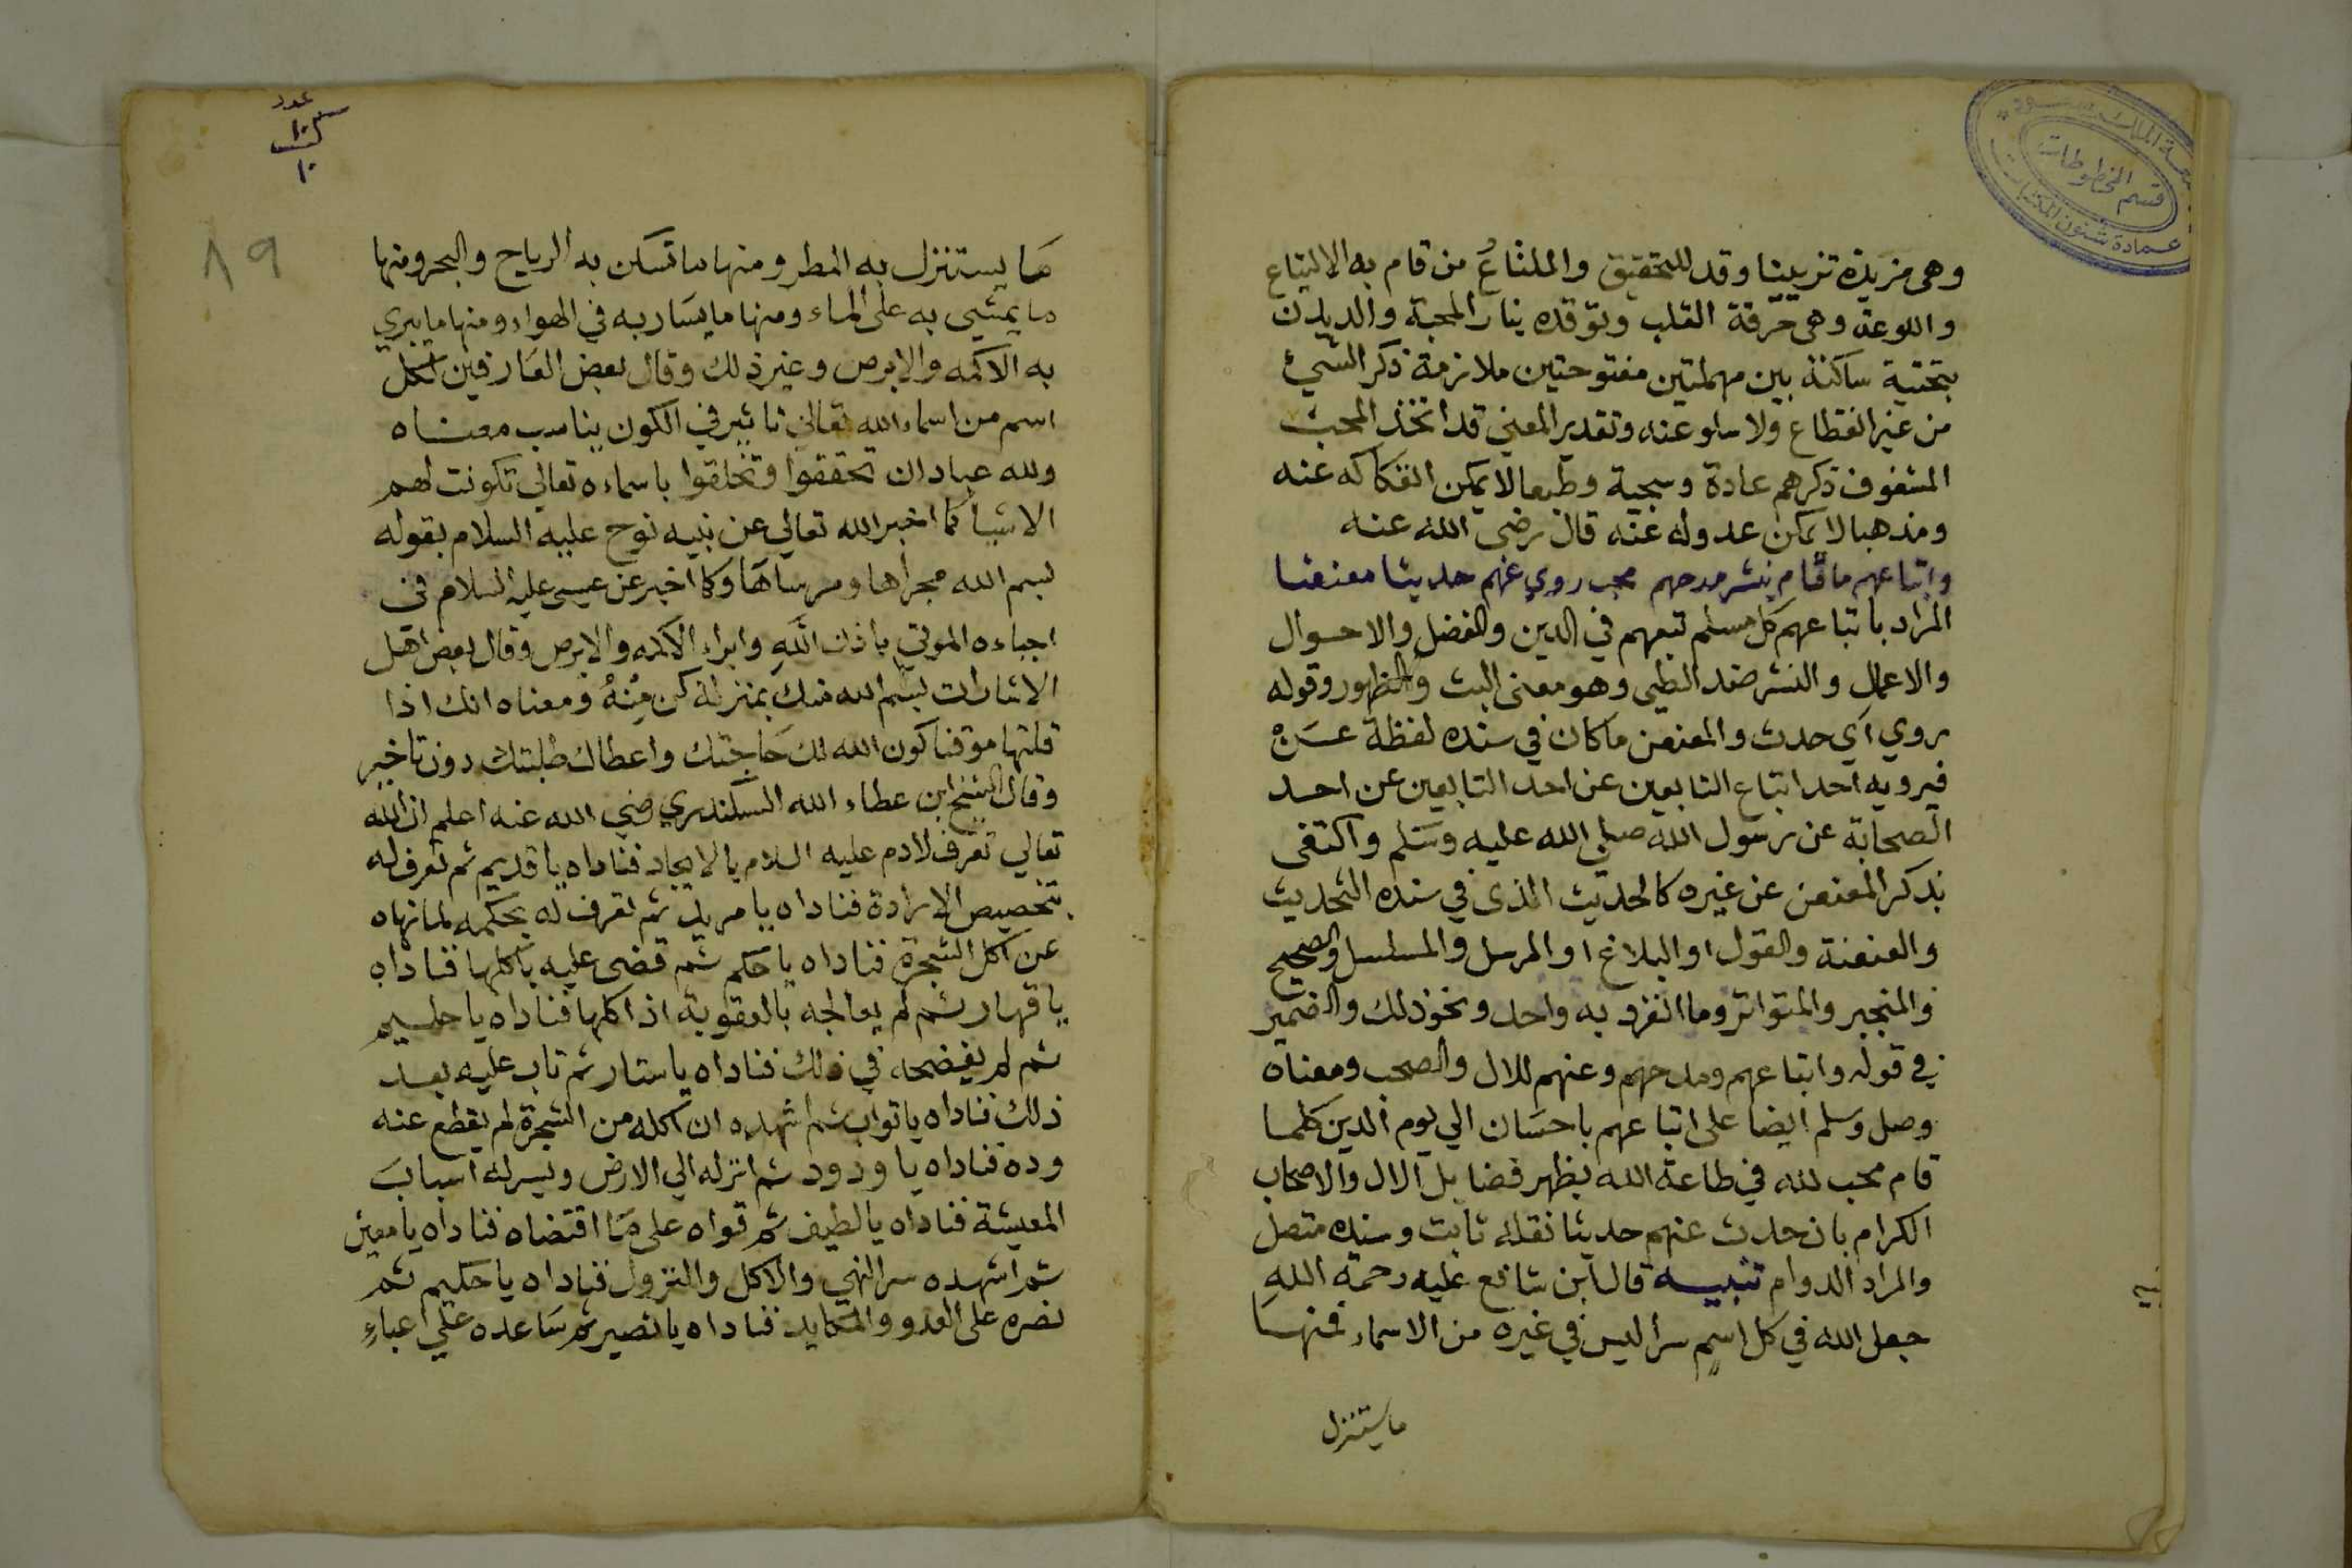 جامعة الملك سعود
قسم المخطوطات
عمادة شئون المكتبات
وهى مزيدة تزيينا وقد للتحقيق والملتاعُ من قام به الالتياع
واللوعة وهى حرقة القلب وتوقده بنار المحبة والديدن
بتحتية ساكنة بين مهملتين مفتوحتين ملازمة ذكر الشيئ
من غير انقطاع ولا سلو عنه وتقدير المعني قد اتخذ المحب
المشغوف ذكرهم عادة وسجية وطبعا لا يمكن انفكاكه عنه
ومذهبا لا يمكن عدوله عنه قال رضي الله عنه
واتباعهم ما قام بنشر مدحهم محب روي عنهم حديثا معنعنا
المراد باتباعهم كل مسلم تبعهم في الدين والفضل والاحوال
والاعمال والنشر ضد الطي وهو معنى البث والظهور وقوله
روي اي حدث والمعنعن ما كان في سنده لفظة عن
فيرويه احد اتباع التابعين عن احد التابعين عن احد
الصحابة عن رسول الله صلي الله عليه وسلم واكتفى
بذكر المعنعن عن غيره كالحديث الذى في سنده التحديث
والعنعنة والقول او البلاغ او المرسل والمسلسل والصحيح
والمنجبر والمتواتر وما انفرد به واحد ونحو ذلك والضمير
في قوله واتباعهم ومدحهم وعنهم للال والصحب ومعناه
وصل وسلم ايضا على اتباعهم باحسان الي يوم الدين كلما
قام محب لله في طاعة الله يظهر فضايل الال والاصحاب
الكرام بان حدث عنهم حديثا نقله ثابت وسنده متصل
والمراد الدوام تنبيه قال ابن شافع عليه رحمة الله
جعل الله في كل اسمٍ سرا ليس في غيره من الاسماء فمنها
ما يستنزل
عدد
١٠
٨٩
ما يستنزل به المطر ومنها ما تسكن به الرياح والبحر ومنها
ما يمشي به على الماء ومنها ما يسار به في الهواء ومنها ما يبري
به الاكمه والابرص وغير ذلك وقال بعض العارفين لكل
اسم من اسماء الله تعالي تاثير في الكون يناسب معناه
ولله عباد ان تحققوا وتخلقوا باسماءه تعالي تكونت لهم
الاشيا كما اخبر الله تعالي عن نبيه نوح عليه السلام بقوله
بسم الله مجراها ومرساها وكما اخبر عن عيسى عليه السلام في
احياءه الموتي باذن الله وابراء الاكمه والابرص وقال بعض اهل
الاشارات بسم الله منك بمنزلة كن مِنهُ ومعناه انك اذا
قلتها موقنا كون الله لك حاجتك واعطاك طلبتك دون تاخير
وقال الشيخ ابن عطاء الله السكندري رضي الله عنه اعلم ان الله
تعالي تعرف لادم عليه السلام بالايجاد فناداه يا قديم ثم تعرف له
بتخصيص الارادة فناداه يا مريد ثم تعرف له بحكمه لما نهاه
عن اكل الشجرة فناداه يا حكم ثم قضى عليه باكلها فناداه
يا قهار ثم لم يعالجه بالعقوبة اذ اكلها فناداه يا حليم
ثم لم يفضحه في ذلك فناداه يا ستار ثم تاب عليه بعد
ذلك فناداه يا تواب ثم اشهده ان اكله من الشجرة لم يقطع عنه
وده فناداه يا ودود ثم انزله الي الارض ويسر له اسباب
المعيشة فناداه يا لطيف ثم قواه على ما اقتضاه فناداه يا معين
ثم اشهده سر النهي والاكل والنزول فناداه يا حكيم ثم
نصره على العدو والمكايد فناداه يا نصير ثم ساعده علي اعباءِ